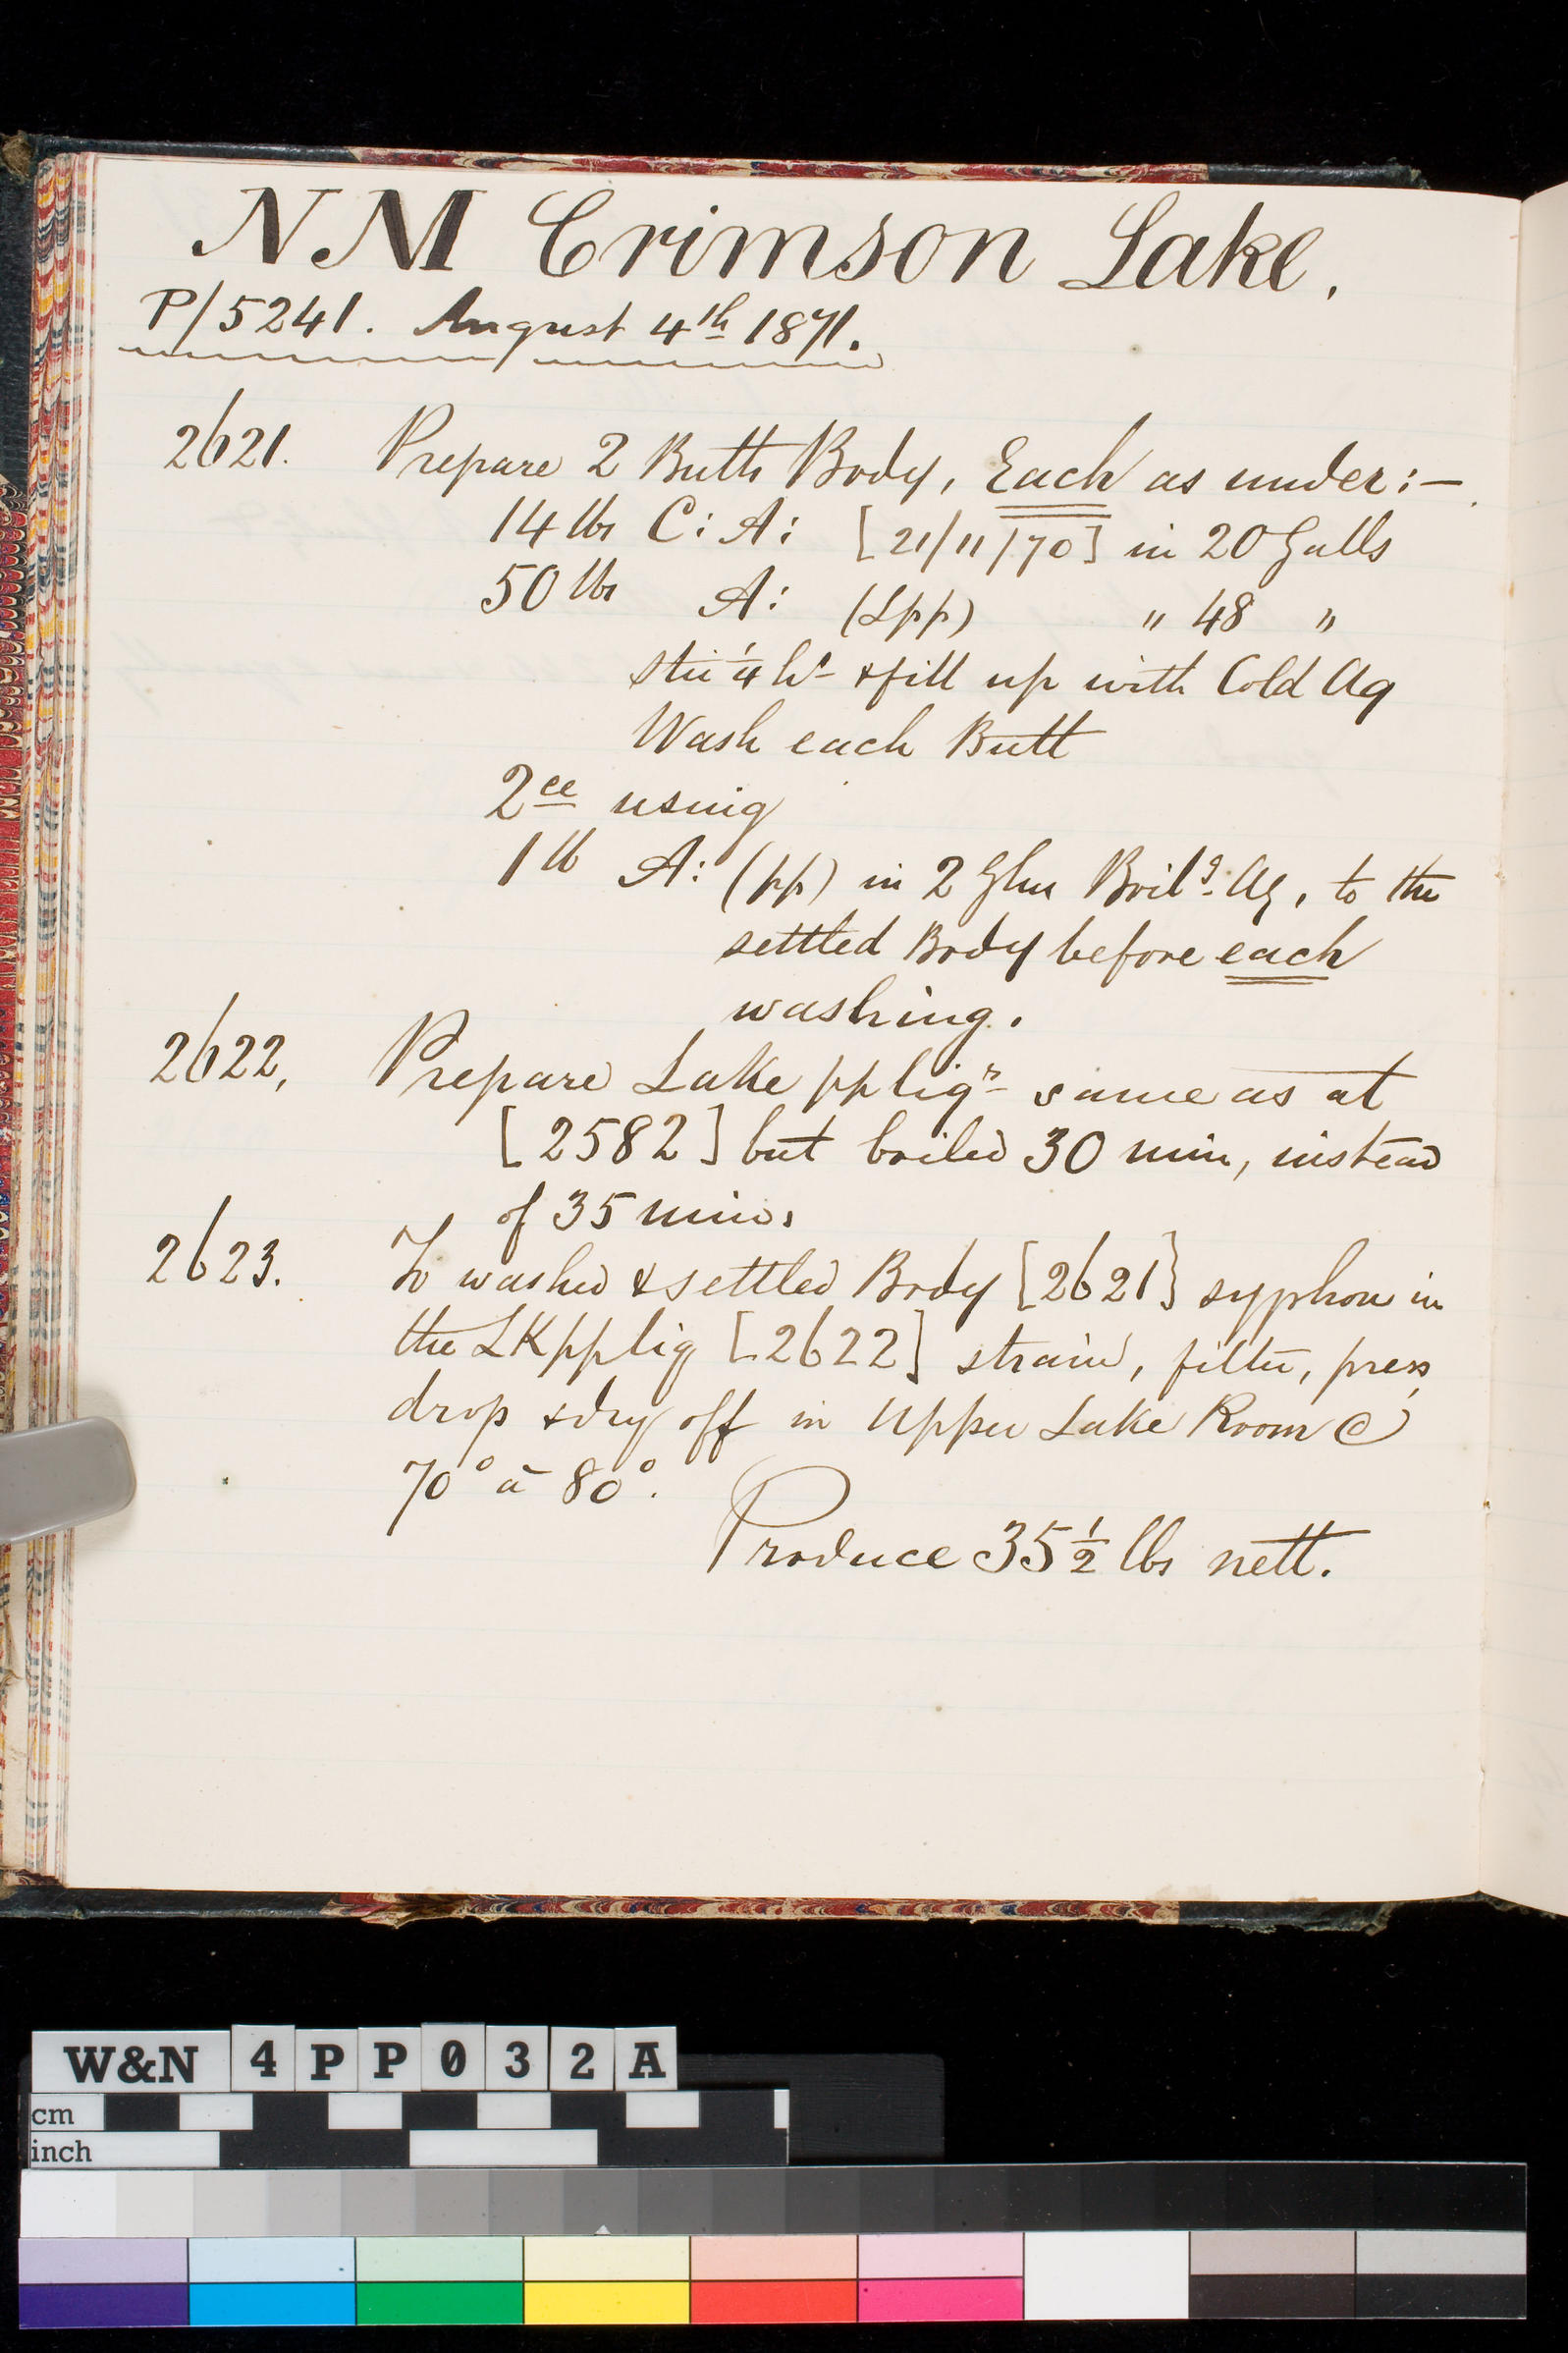 NM Crimson Lake.
P/5241. August 4th 1871.
2621. Prepare 2 Butts Body, Each as under:—
14 lbs C: A: [21/11/70] in 20 Galls
50 lbs A: (Lpp) " 48 "
stir 1/4 hr & fill up with Cold Aq
Wash each Butt
2ce using
1 lb A: (pp) in 2 Glns Boilg. Aq, to the
settled Body before each
washing.
2622, Prepare Lake pp liqr same as at
[2582] but boiled 30 min, instead
of 35 min.
2623. To washed & settled Body [2621] syphon in
the LK pp liq [2622] strain, filter, press,
drop & dry off in Upper Lake Room @
70° a 80°.
Produce 35 1/2 lbs nett.
W&N 4PP032A
cm
inch